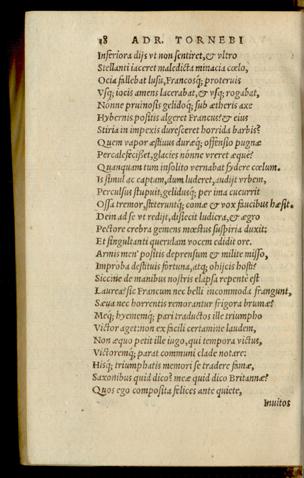 18 ADR. TORNEBI
Inferiora dijs vt non sentiret, & vltro
Stellanti iaceret maledicta minacia cœlo,
Ocia fallebat lusu, Francosq́; proteruis
Vsq́; iocis amens lacerabat, & vsq́; rogabat,
Nónne pruinosis gelidoq́; sub ætheris axe
Hybernis positis algeret Francus? & eius
Stiria in impexis duresceret horrida barbis?
Quem vapor æstiuus duræq́; offensio pugnæ
Percalefecißet, glacies nónne vreret æquè?
Quanquam tum insolito vernabat sydere cœlum.
Is simul ac captam, dum luderet, audijt vrbem,
Perculsus stupuit, gelidusq́; per ima cucurrit
Ossa tremor, steteruntq́; comæ & vox faucibus hæsit.
Dein ad se vt redijt, disiecit ludicra, & ægro
Pectore crebra gemens mœstus suspiria duxit:
Et singultanti querulam vocem edidit ore.
Armis men' positis deprensum & milite misso,
Improba destituis fortuna, atq́; obijcis hosti?
Siccine de manibus nostris elapsa repentè est
Laurea? sic Francum nec belli incommoda frangunt,
Sæua nec horrentis remorantur frigora brumæ?
Meq́; hyememq́; pari traductos ille triumpho
Victor aget: non ex facili certamine laudem,
Non æquo petit ille iugo, qui tempora victus,
Victoremq́; parat communi clade notare:
Hisq́; triumphatis memori se tradere famæ,
Saxonibus quid dico? meæ quid dico Britannæ?
Quos ego composita felices ante quiete,
Inuitos